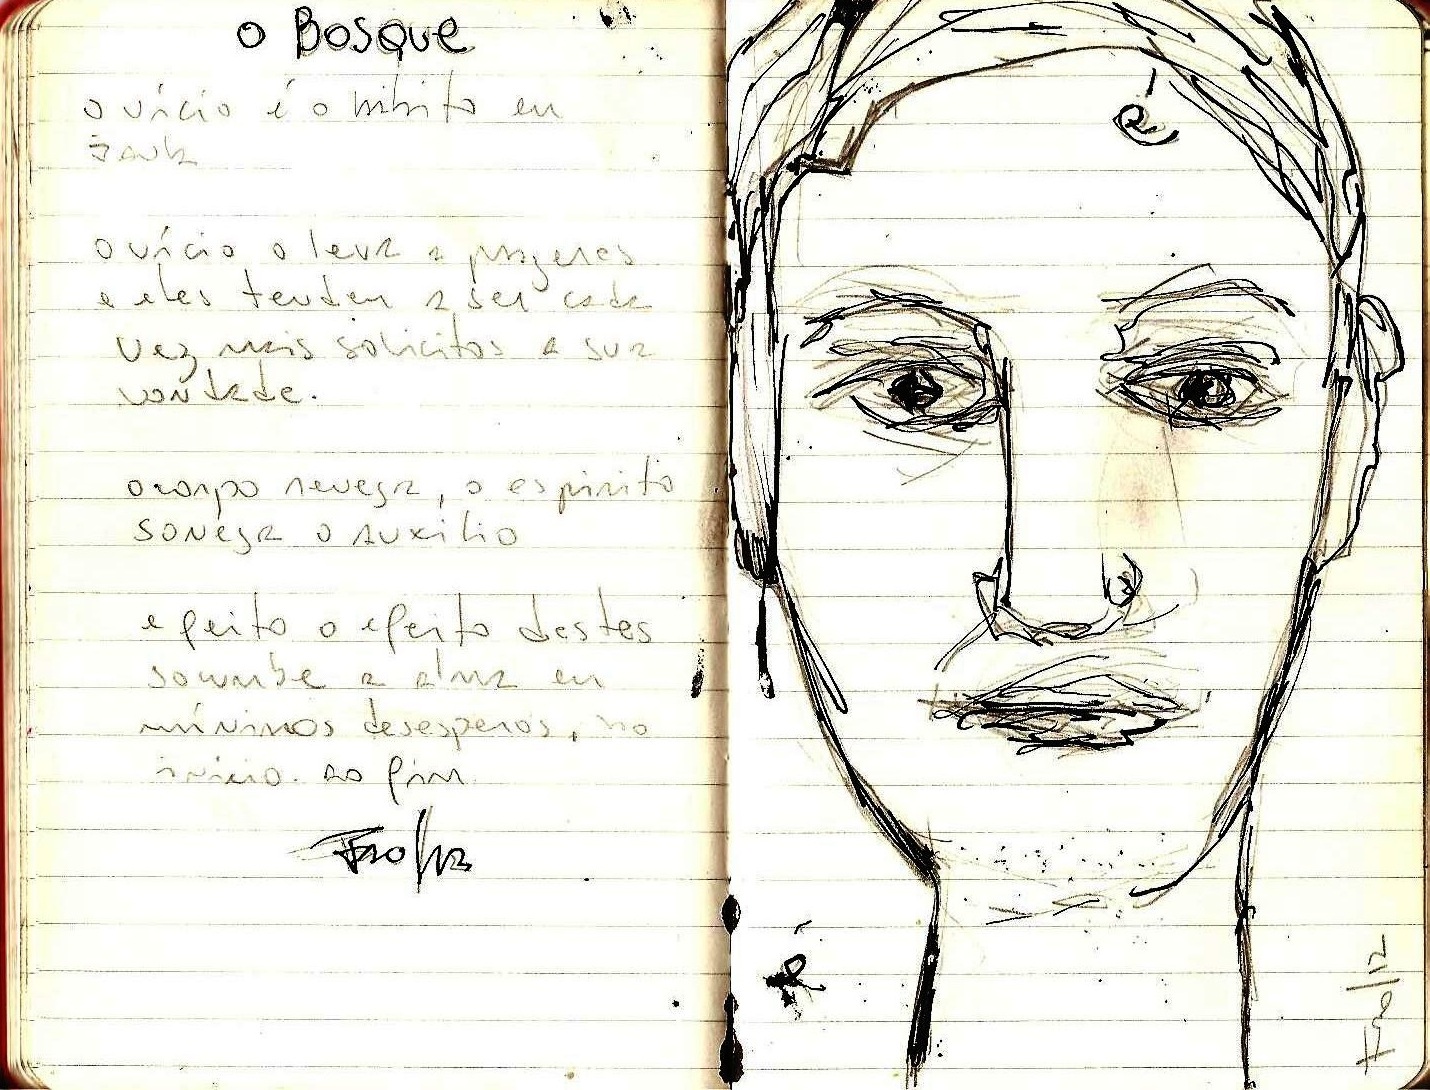 O BOSQUE
o vício é o hábito em
o vício o leva a prazeres
e eles tendem a ser cada
vez mais solícitos a sua
vontade.
o corpo renega, o espírito
sonega o auxílio
e feito o efeito destes
sucumbe a alma em
mínimos desesperos, no
início. ao fim.
é
é